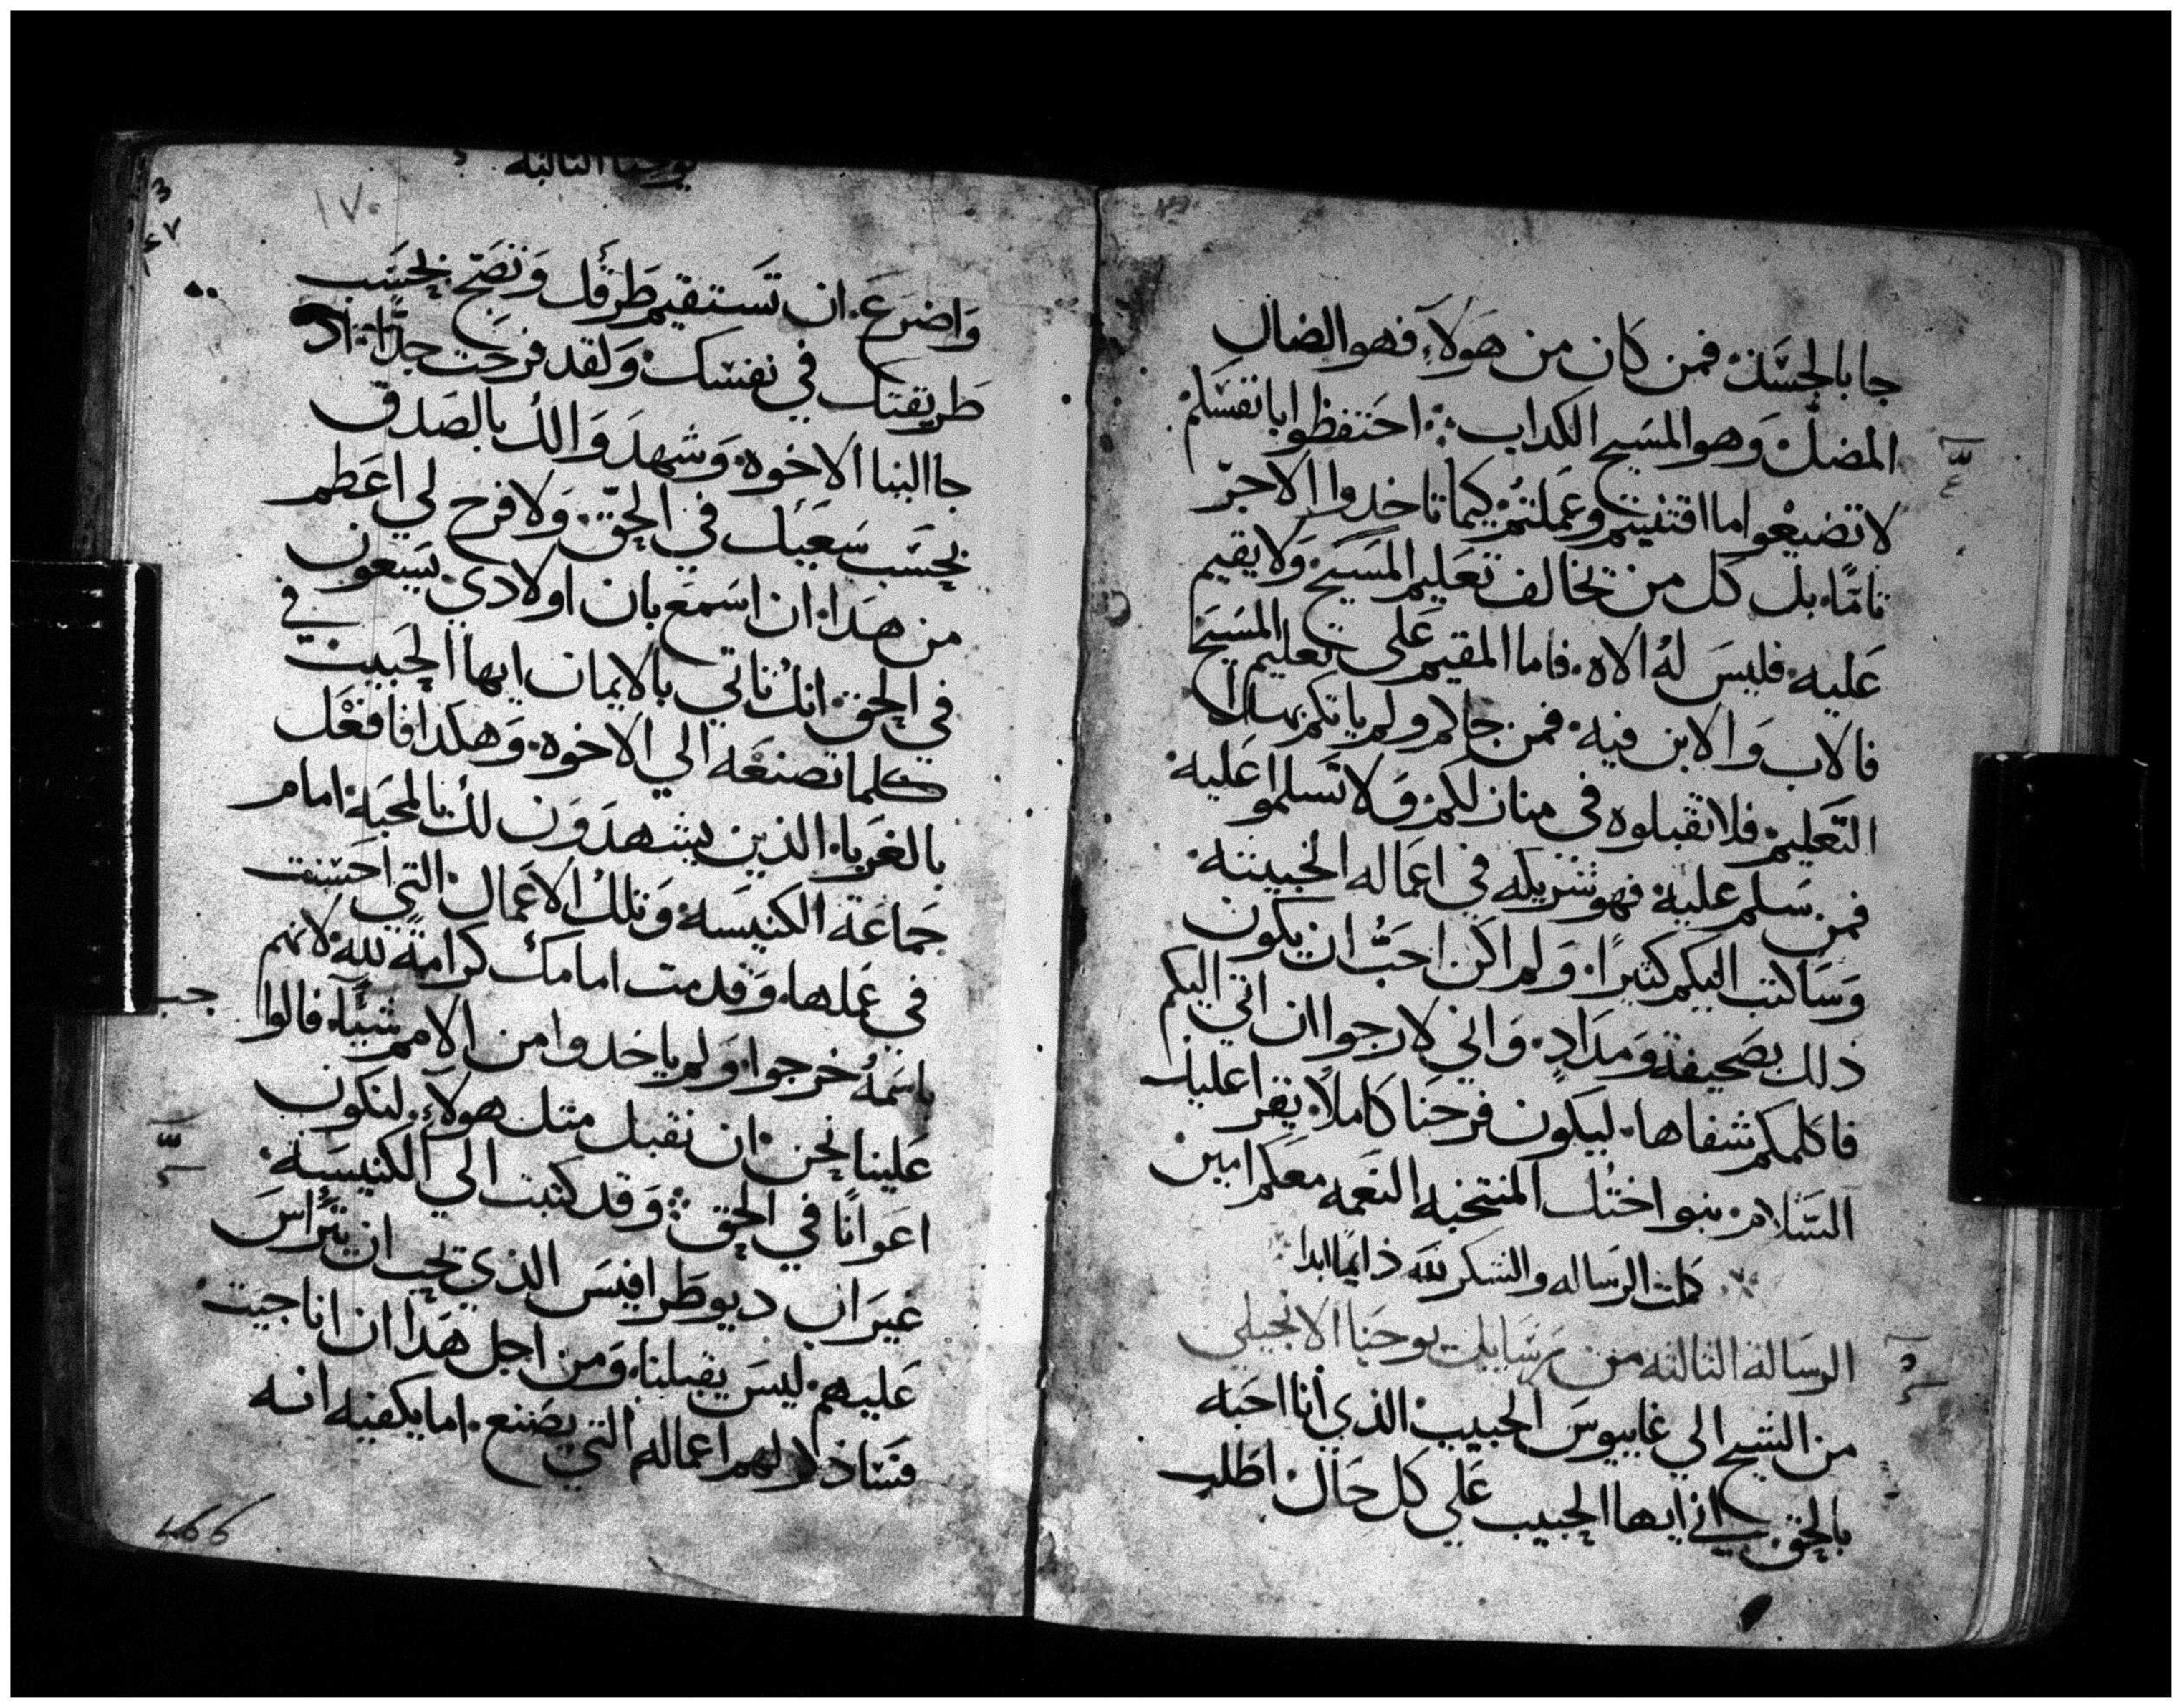 جا بالجسد فمن كان من هولاء فهو الضال
المضل وهو المسيح الكداب احتفظوا بانفسكم
لا تضيعوا ما اقتنيتم وعملتم كيما تاخدوا الاجر
تامًا بل كل من يخالف تعليم المسيح ولا يقيم
عليه فليس له الاه فاما المقيم على تعليم المسيح
فالاب والابن فيه فمن جاكم ولم ياتكم بهدا
التعليم فلا تقبلوه في منازلكم ولا تسلموا عليه
فمن سلم عليه فهو شريكه في اعماله الخبيثه
وساكتب اليكم كثيرًا ولم اكن احب ان يكون
ذلك بصحيفه ومدادٍ واني لارجوا ان اتي اليكم
فاكلمكم شفاها ليكون فرحنا كاملاً يقرا عليك
السلام بنوا اختك المنتخبه النعمه معكم امين
كملت الرساله والشكر لله دايمًا ابدا
الرسالة الثالثه من رسايل يوحنا الانجيلي
من الشيخ الي غاييوس الحبيب الذي أنا احبه
بالحق اني ايها الحبيب علي كل حال اطلب
يوحنا الثالثه
١٧٠
واضرع ان تستقيم طرقك وتصح بحسب
طريقتك في نفسك ولقد فرحت جدًا اد
جا الينا الاخوه وشهدوا لك بالصدق
بحسب سعيك في الحق ولا فرح لي اعظم
من هدا ان اسمع بان اولادي يسعون
في
في الحق انك تاتي بالايمان ايها الحبيب
كلما تصنعه الي الاخوه وهكدا فافعل
بالغرباء الذين يشهدون لك بالمحبه امام
جماعة الكنيسه وتلك الاعمال التي احسنت
في عملها وقدمت امامك كرامةً لله لانهم
باسمه خرجوا ولم ياخدوا من الامم شيًا فالوا
جب
علينا نحن ان نقبل مثل هولاء لنكون
اعوانًا في الحق وقد كتبت الي الكنيسه
غير ان ديوطرافيس الذي يحب ان يتراس
عليهم ليس يقبلنا ومن اجل هدا ان انا جيت
فساذكر لهم اعماله التي يصنع اما يكفيه انه
466